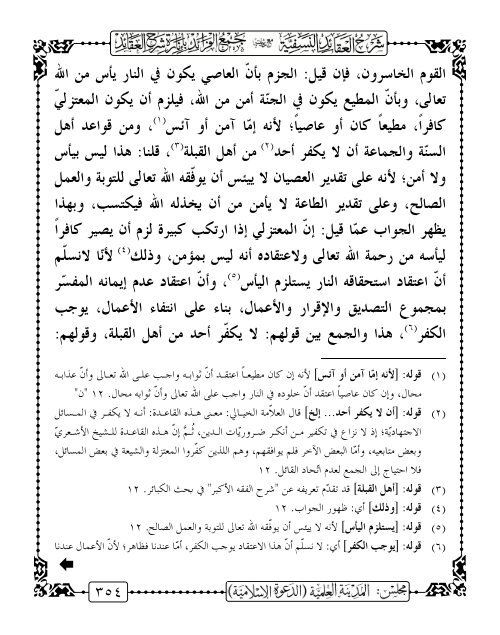 شرح العقائد النسفية مع حاشيته جمع الفرائد بإنارة شرح العقائد
القوم الخاسرون، فإن قيل: الجزم بأنّ العاصي يكون في النار يأس من الله
تعالى، وبأنّ المطيع يكون في الجنّة أمن من الله، فيلزم أن يكون المعتزليّ
كافراً، مطيعاً كان أو عاصياً؛ لأنه إمّا آمن أو آئس(١)، ومن قواعد أهل
السنّة والجماعة أن لا يكفر أحد(٢) من أهل القبلة(٣)، قلنا: هذا ليس بيأس
ولا أمن؛ لأنه على تقدير العصيان لا ييئس أن يوفّقه الله تعالى للتوبة والعمل
الصالح، وعلى تقدير الطاعة لا يأمن من أن يخذله الله فيكتسب، وبهذا
يظهر الجواب عمّا قيل: إنّ المعتزلي إذا ارتكب كبيرة لزم أن يصير كافراً
ليأسه من رحمة الله تعالى ولاعتقاده أنه ليس بمؤمن، وذلك(٤) لأنّا لانسلّم
أنّ اعتقاد استحقاقه النار يستلزم اليأس(٥)، وأنّ اعتقاد عدم إيمانه المفسّر
بمجموع التصديق والإقرار والأعمال، بناء على انتفاء الأعمال، يوجب
الكفر(٦)، هذا والجمع بين قولهم: لا يكفّر أحد من أهل القبلة، وقولهم:
(١) قوله: [لأنه إمّا آمن أو آئس] لأنه إن كان مطيعـاً اعتقـد أنّ ثوابـه واجـب علـى الله تعـالى وأنّ عذابـه
محال، وإن كان عاصيـاً اعتقد أنّ خلوده في النار واجب على الله تعالى وأنّ ثوابه محال. ١٢ "ن"
(٢) قوله: [أن لا يكفر أحد... إلخ] قال العلاّمة الخيـالي: معنـى هـذه القاعـدة: أنـه لا يكفـر فـي المسـائل
الاجتهاديّة؛ إذ لا نزاع في تكفير مـن أنكـر ضـروريّات الـدين، ثُـمَّ إنّ هـذه القاعـدة للشـيخ الأشعـريّ
وبعض متابعيه، وأمّا البعض الآخر فلم يوافقهم، وهم الـذين كفّروا المعتزلة والشيعة في بعض المسائل،
فلا احتياج إلى الجمع لعدم اتّحاد القائل. ١٢
(٣) قوله: [أهل القبلة] قد تقدّم تعريفه عن "شرح الفقه الأكبر" في بحث الكبائر. ١٢
(٤) قوله: [وذلك] أي: ظهور الجواب. ١٢
(٥) قوله: [يستلزم اليأس] لأنه لا ييئس أن يوفّقه الله تعالى للتوبة والعمل الصالح. ١٢
(٦) قوله: [يوجب الكفر] أي: لا نسلّم أنّ هذا الاعتقاد يوجب الكفر، أمّا عندنا فظاهر؛ لأنّ الأعمال عندنا
مجلس: المدينة العلمية (الدعوة الإسلامية)
٣٥٤